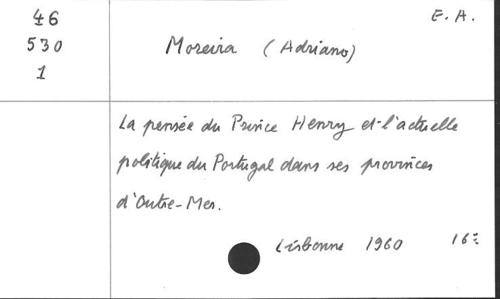 46
530
1
E. A.
Moreira (Adriano)
La pensée du Prince Henry et l'actuelle
politique du Portugal dans ses provinces
d'Outre-Mer.
Lisbonne 1960 16º